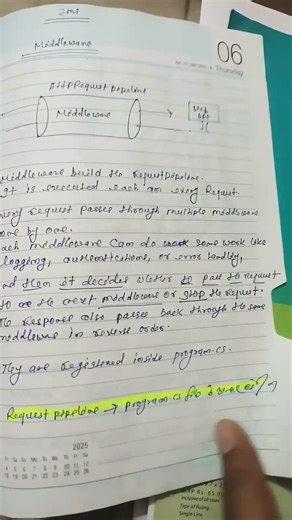 Middleware
06
Thursday
HttpRequest pipeline
Middleware
Middleware build the requestpipeline.
It is executed each an every Request
every request passes through multiple middleware
one by one.
each middleware can do some work like
logging, authentications, or error handling,
and then it decides whether to pass the request
to the next middleware or stop the request.
The response also passes back through the same
middleware in reverse order.
They are registered inside program.cs.
Request pipeline → program.cs
2025
Su Mo Tu We Th Fr Sa
Single Line